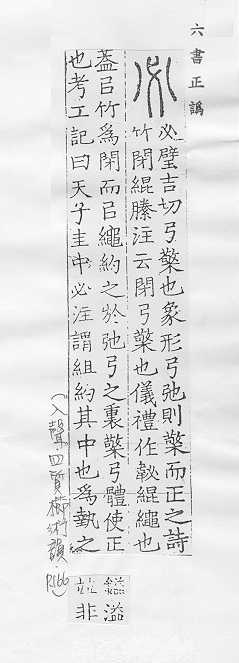 六書正譌
必璧吉切弓檠也象形弓弛則檠而正之詩
竹閉緄縢注云閉弓檠也儀禮作䪐緄繩也
葢㠯竹爲閉而㠯繩約之於弛弓之裏檠弓體使正
也考工記曰天子圭中必注謂組約其中也爲執之
(入聲四質櫛術韻
P.166)
謚非